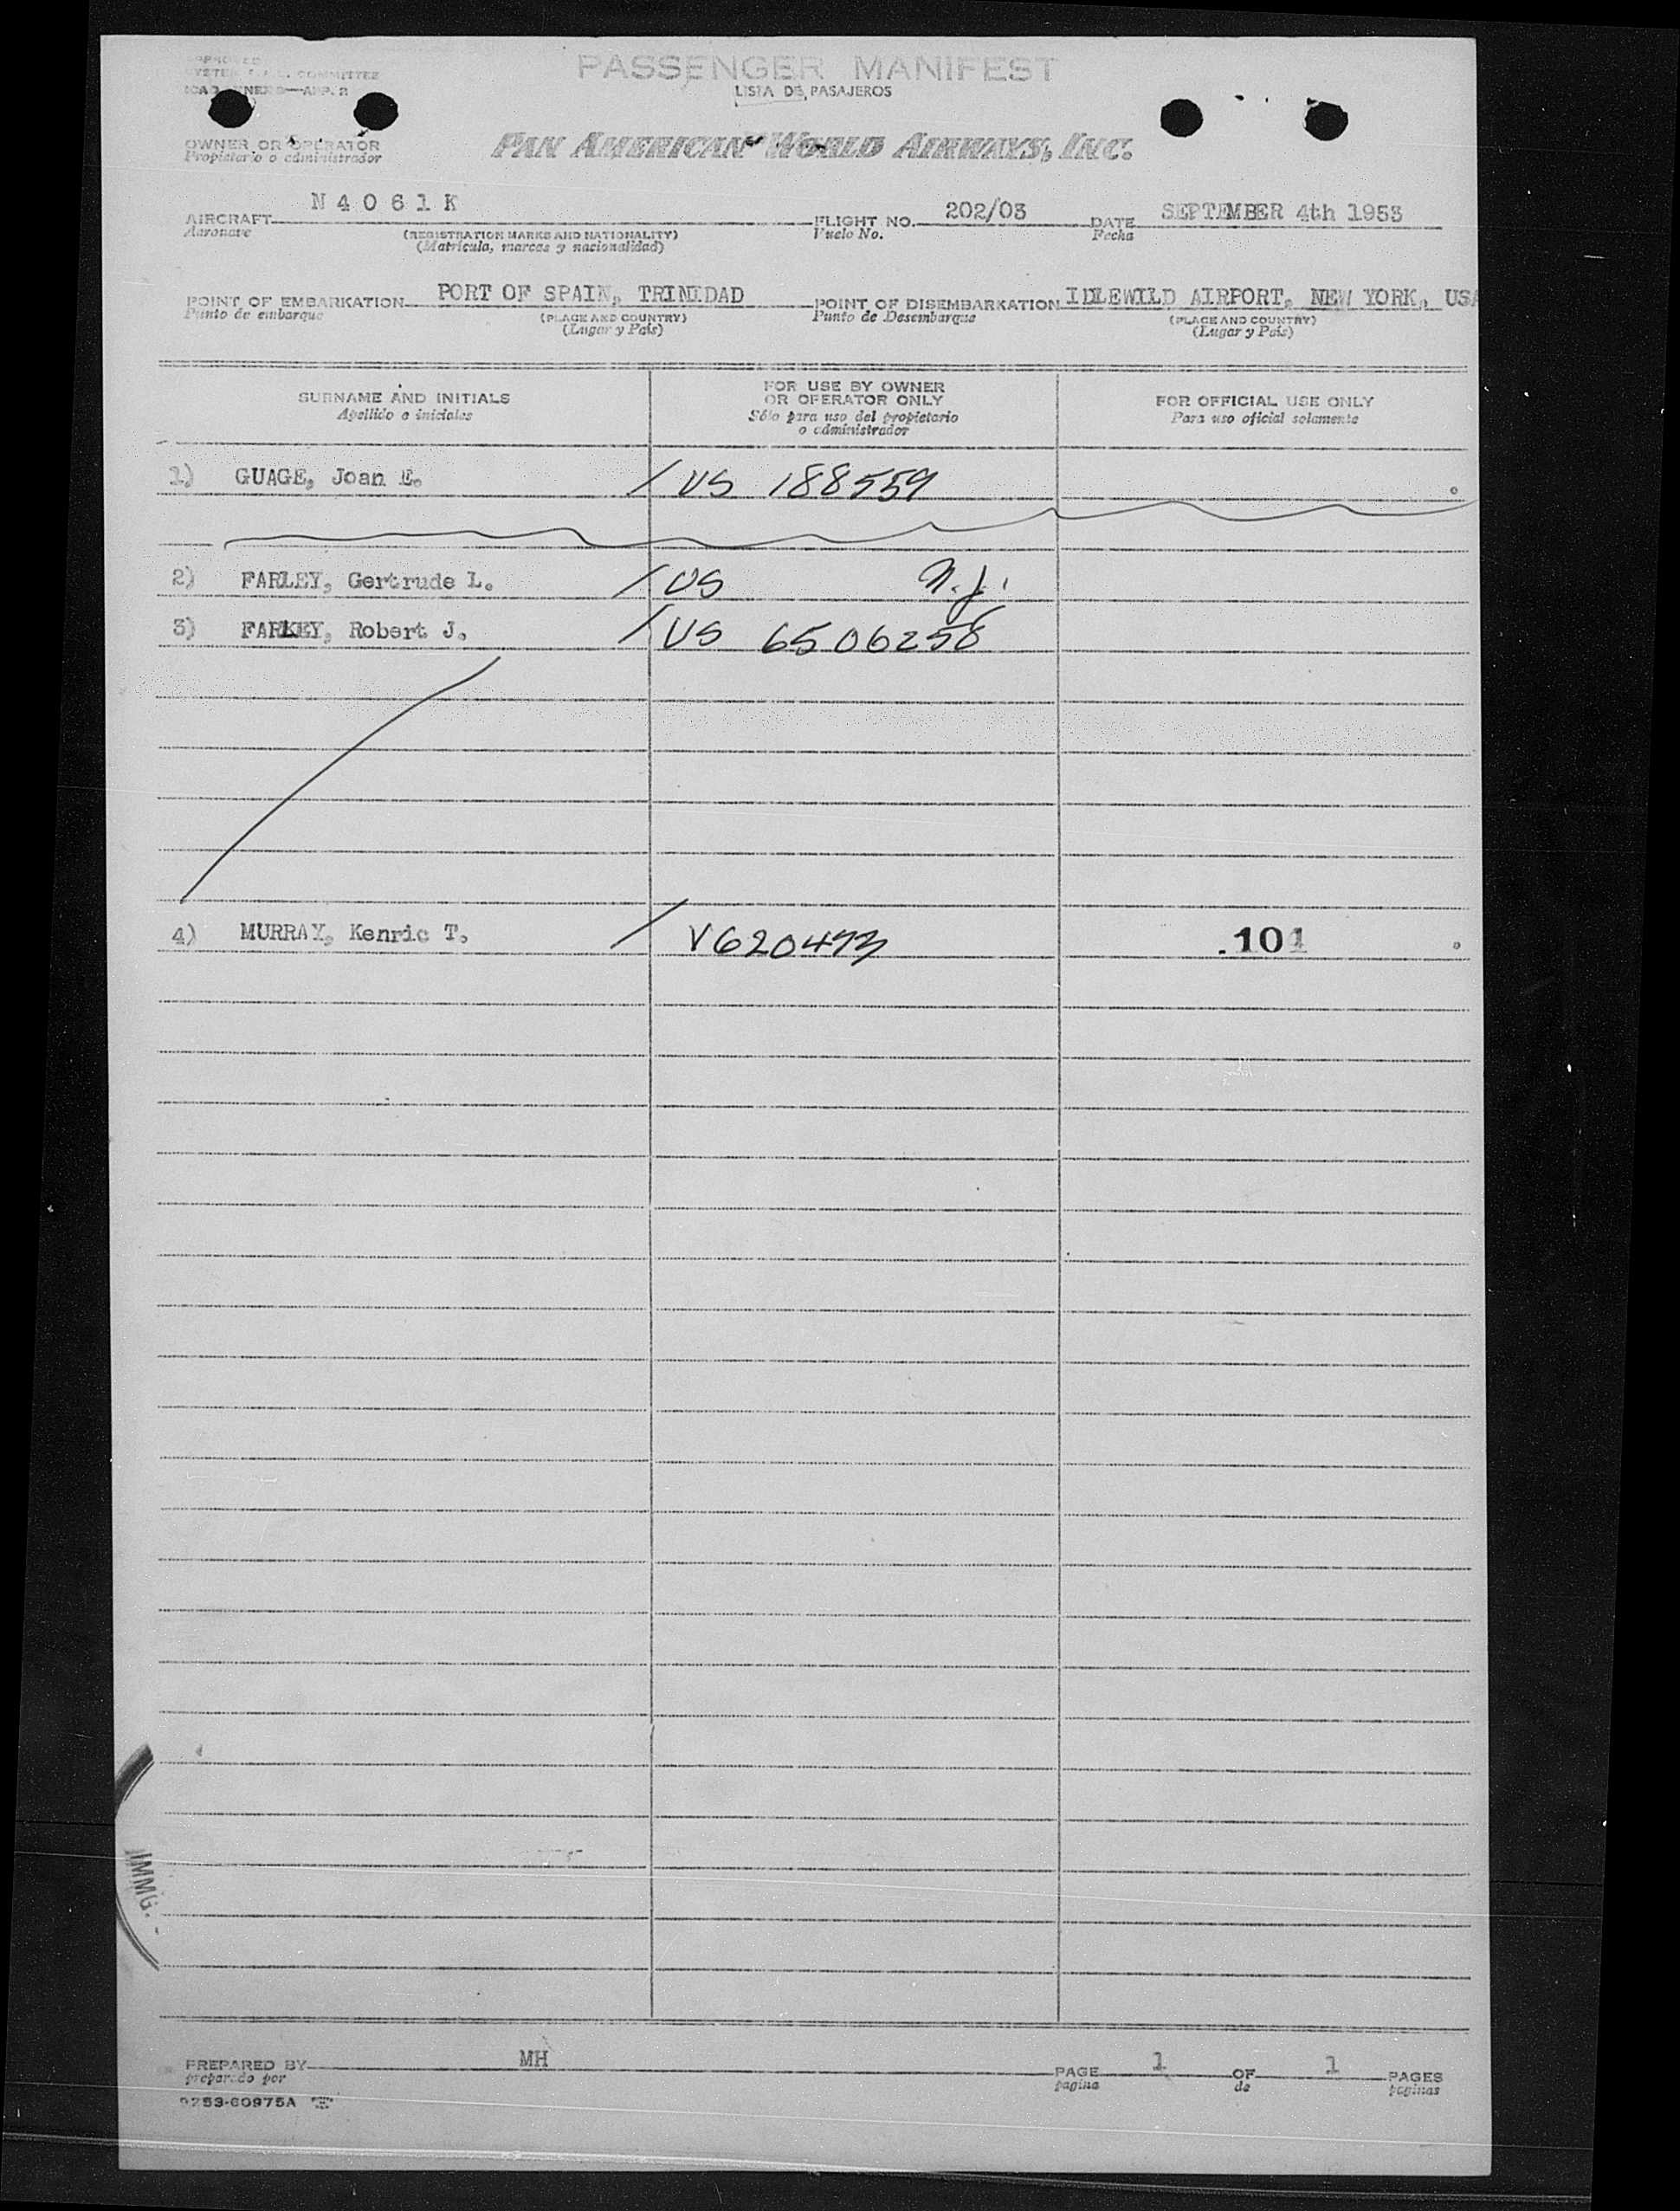 APPROVED
SYSTEM F.A.L. COMMITTEE
ICAO ANEX 9—APP. 2
PASSENGER MANIFEST
LISTA DE PASAJEROS
OWNER OR OPERATOR
Propietario o administrador
PAN AMERICAN WORLD AIRWAYS, INC.
AIRCRAFT N 4 0 6 1 K FLIGHT NO. 202/03 DATE SEPTEMBER 4th 1953
Aeronave (REGISTRATION MARKS AND NATIONALITY) Vuelo No. Fecha
(Matrícula, marcas y nacionalidad)
POINT OF EMBARKATION PORT OF SPAIN, TRINIDAD POINT OF DISEMBARKATION IDLEWILD AIRPORT, NEW YORK, USA
Punto de embarque (PLACE AND COUNTRY) Punto de Desembarque (PLACE AND COUNTRY)
(Lugar y País) (Lugar y País)
SURNAME AND INITIALS
Apellido e iniciales
FOR USE BY OWNER
OR OPERATOR ONLY
Sólo para uso del propietario
o administrador
FOR OFFICIAL USE ONLY
Para uso oficial solamente
1) GUAGE, Joan E. / US 188559
2) FARLEY, Gertrude L. / US N.J.
3) FARKEY, Robert J. / US 6506258
4) MURRAY, Kenric T. / V620473 .101
IMMG.
PREPARED BY MH PAGE 1 OF 1 PAGES
preparado por pagina de paginas
0253-60975A "E"